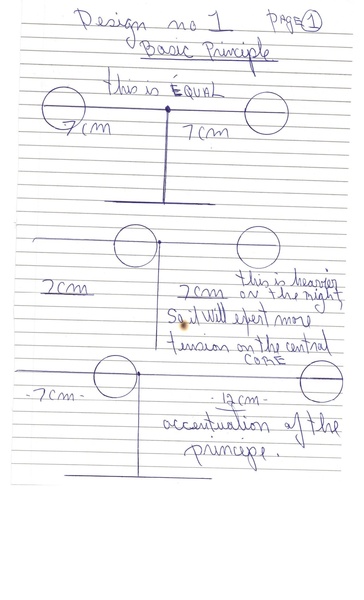 Design no 1 PAGE 1
Basic Principle
this is EQUAL
7cm 7cm
7cm 7cm this is heavier
on the right,
So it will exert more
tension on the central
CORE
-7cm- -12cm-
accentuation of the
principe.